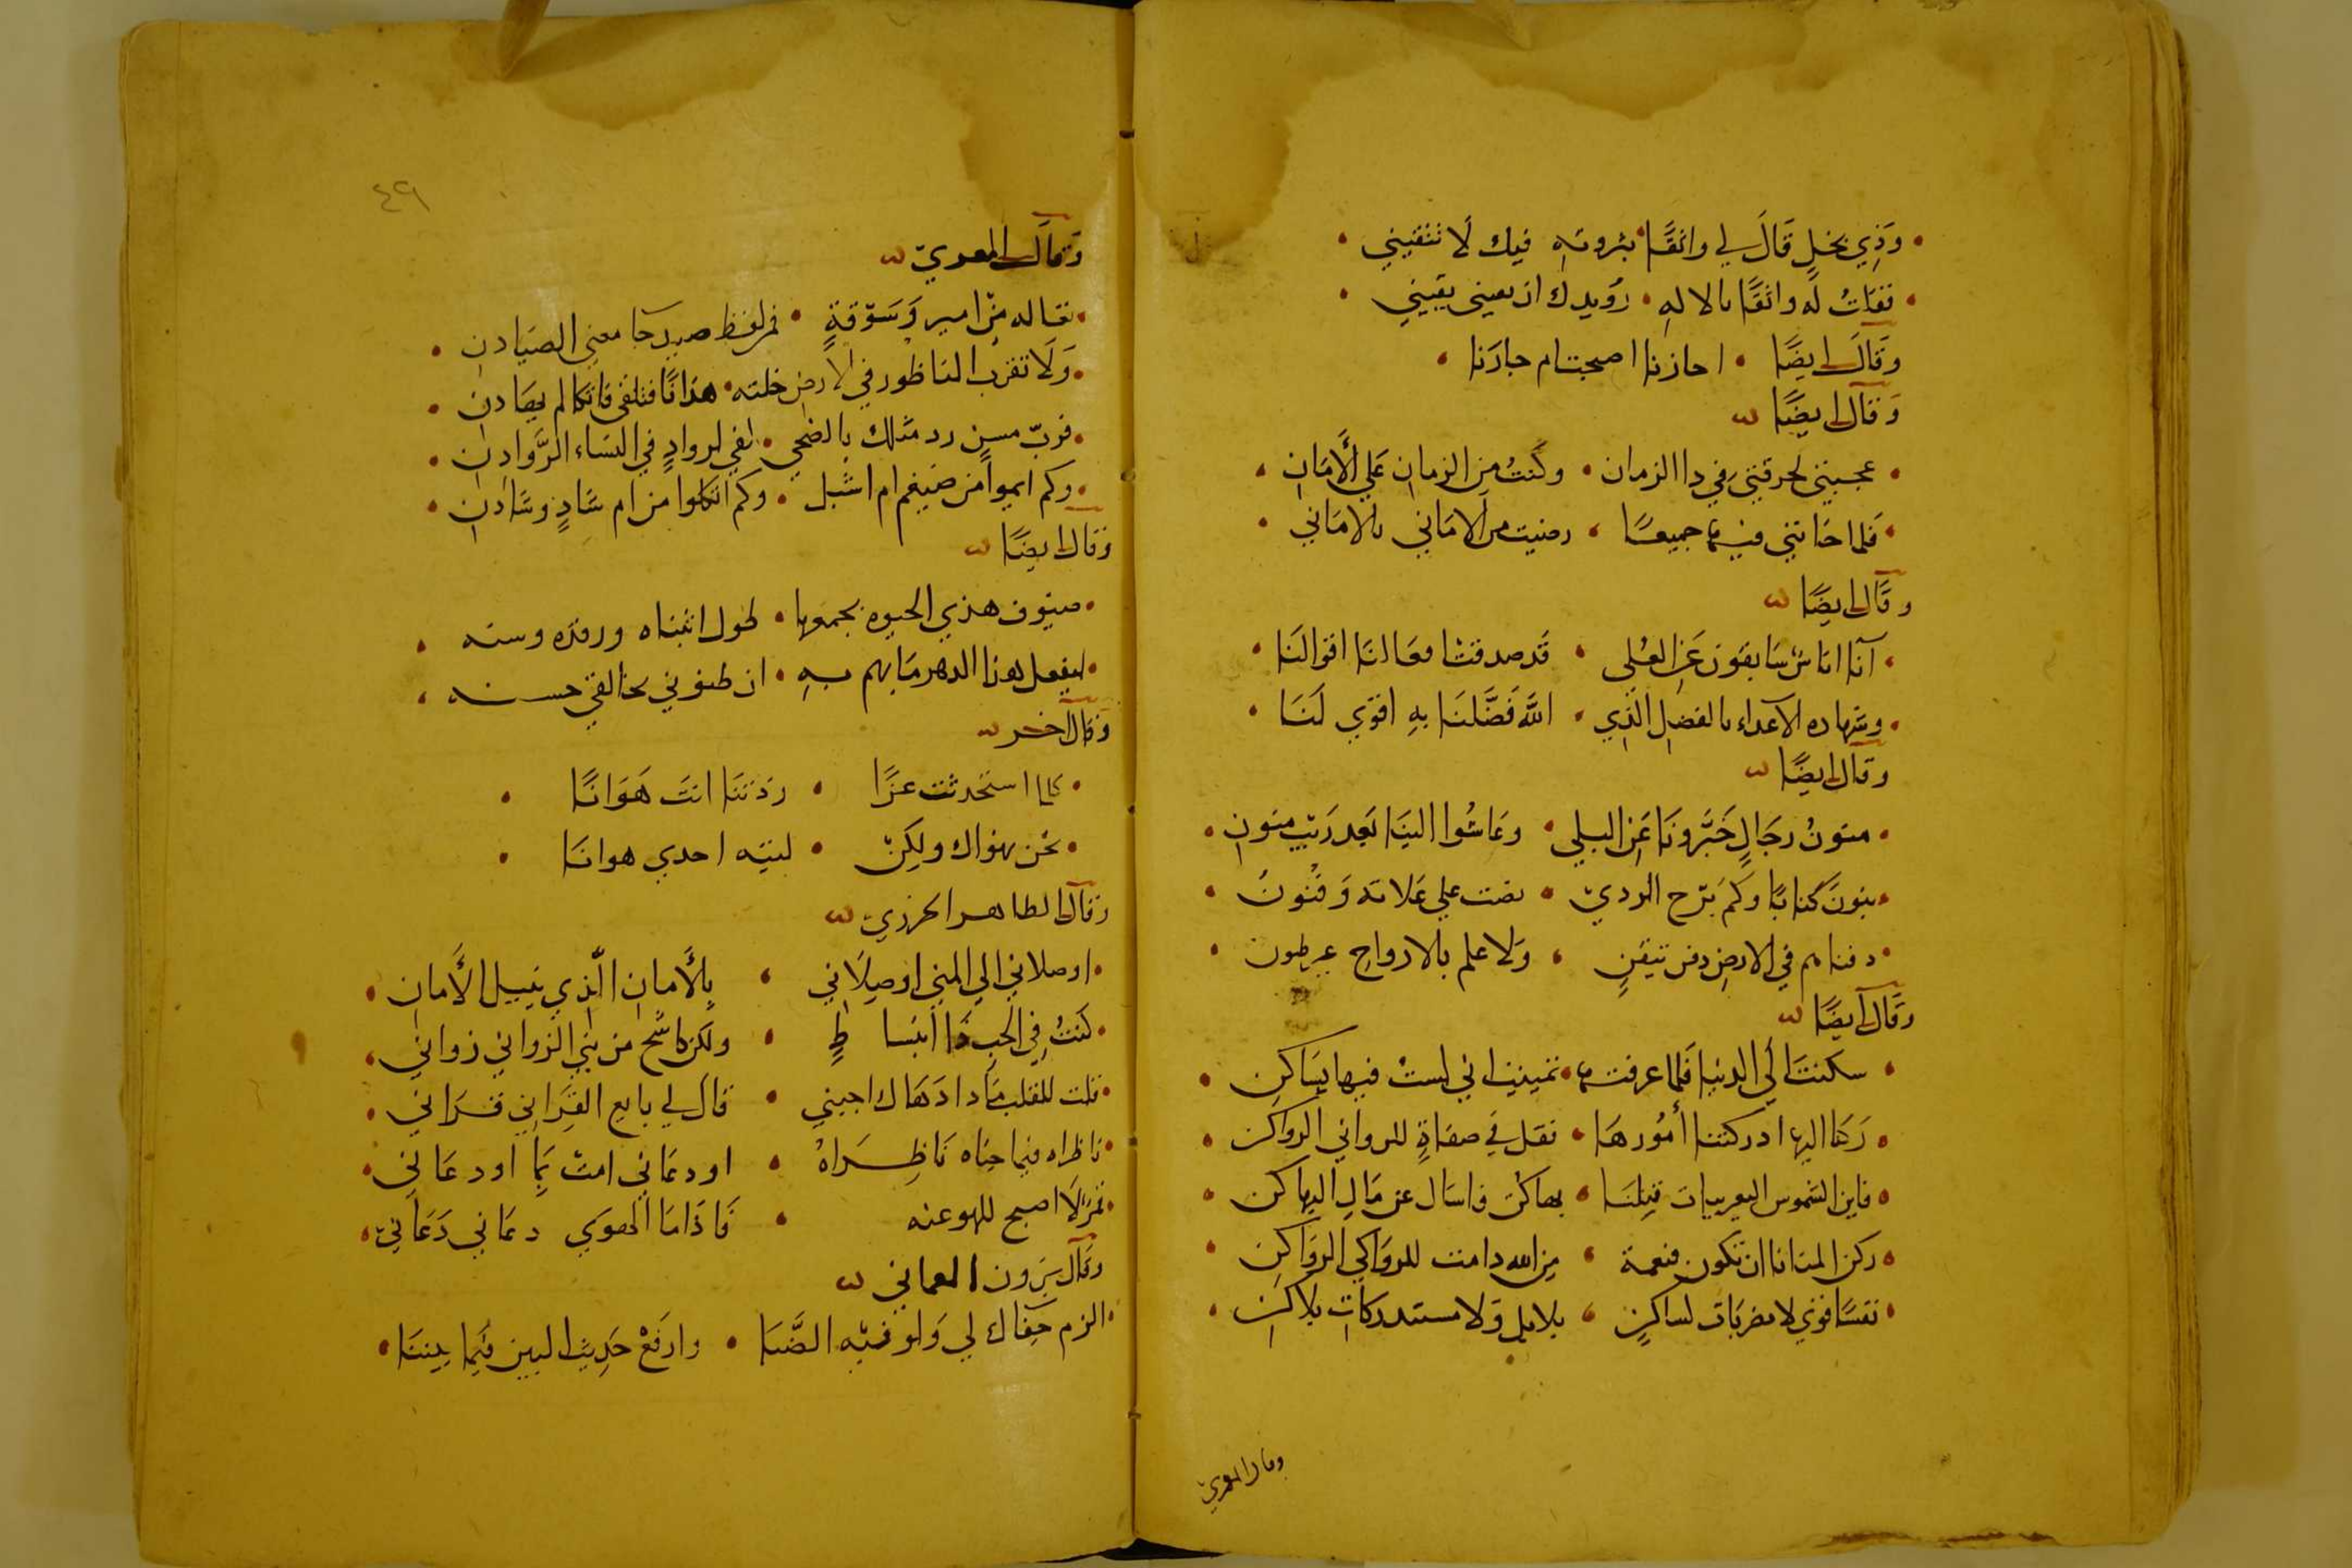 وَذِي بخلٍ قَالَ لي واثقًا • بثروته فيك لا تتقيني •
• فقلتُ له واثقًا بالاله • رُوَيدك ان يعيني يقيني •
وَقَالَ ايضًا • احازنا اصحبت ام جازنا •
وَقَالَ ايضًا
• عجبتني لحرقتي في ذا الزمان • وكنتُ من الزمان علي الأَمان •
• فلما خانني فيها جميعًا • رضيت من الاماني بالاماني •
وقَال ايضًا
• آنا اناسٌ سَابقون عَن العُلى • قَد صدقت افعالنَا اقوالنَا •
• وشهاده الاعداء بالفضل الَّذي • اللَّه فَضَّلنَا بهِ اقوَي لَنَا •
وقال ايضًا
• منونُ رجَالٍ خَبَّرونَا عَنِ البلي • وعَاشُوا الينَا بَعد رَيْبِ منونِ •
• بنونَ كابا وكَم بَرّح الردي • بضت علي علاته وَفنُونُ •
• دفناهم في الارضِ دفن تيقنٍ • ولا علم بالارواحِ غير ظنون •
وقَالَ ايضًا
• سكنتَ الي الدنيا فلما عرفتها • تمنيت اني لستُ فيها بسَاكنِ •
• رَكنا اليها اذ ركنا أُمُورهَا • فقل في صفاةٍ للرواني الرواكن •
• فاين الشموس اليعربيات قبلنَا • بها كن فاسَال عن مَالِ اليها كن •
• ركن المنايا ان تكون فنعمة • مِن الله دامت للرواكي الرواكن •
• نفسًا فوني لا مغربات لساكنٍ • بلا بل وَلا مستدركاتٍ بلاكِن •
وقال المعري
٤٩
وَقَالَ المعري
• نقاله من امير وَسَوقةٍ • فمر لفظ صيد جا معني الصيادن •
• وَلا تقرب الناظور في الارض خلته • هذانًا فتلقي فاتكا لم يصَادن •
• فربّ مسنٍ رد مثلك بالضحي • لفي لروادٍ في النسَاء الرَّوادن •
• وكم ايموا من ضيغم ام اشبل • وكم اثكلوا من ام شادٍ وشَادن •
وَقال ايضًا
• صنوف هذي الحيوه يجمعها • طول انتباه ورقده وسنه •
• ليفعل هذا الدهر مَا يهم بهِ • ان ظنوني بخالقي حسنه •
وَقال آخر
• كلما استحدثت عزًّا • زدتنَا انتَ هَوَانًا •
• نحن نهواك ولكن • ليته احدي هوانَا •
وقَال الطاهر الخرزي
• اوصلاني الي المني اوصِلَاني • بِالأَمانِ الّذي ينيل الأَمان •
• كنتُ في الحب ذا انبساطٍ • ولكن كاشح من بني الزواني زواني •
• قلت للقلب مَا ذا دَهَاك اجبني • قال لي بايع الفِرَاني فَرَاني •
• ناظراه فيما جنَاه نَاظِرَاهُ • اودعَاني امت بِمَا اودعَاني •
• لا اصبح للهو عنه • فَاذَامَا الهوَي دعَاني دَعَاني •
وقَال بَرون العماني
• الزم جفَاك لي وَلو فيه الضَّنَا • وارفَعْ حَدِيث البين فيمَا بيننَا •